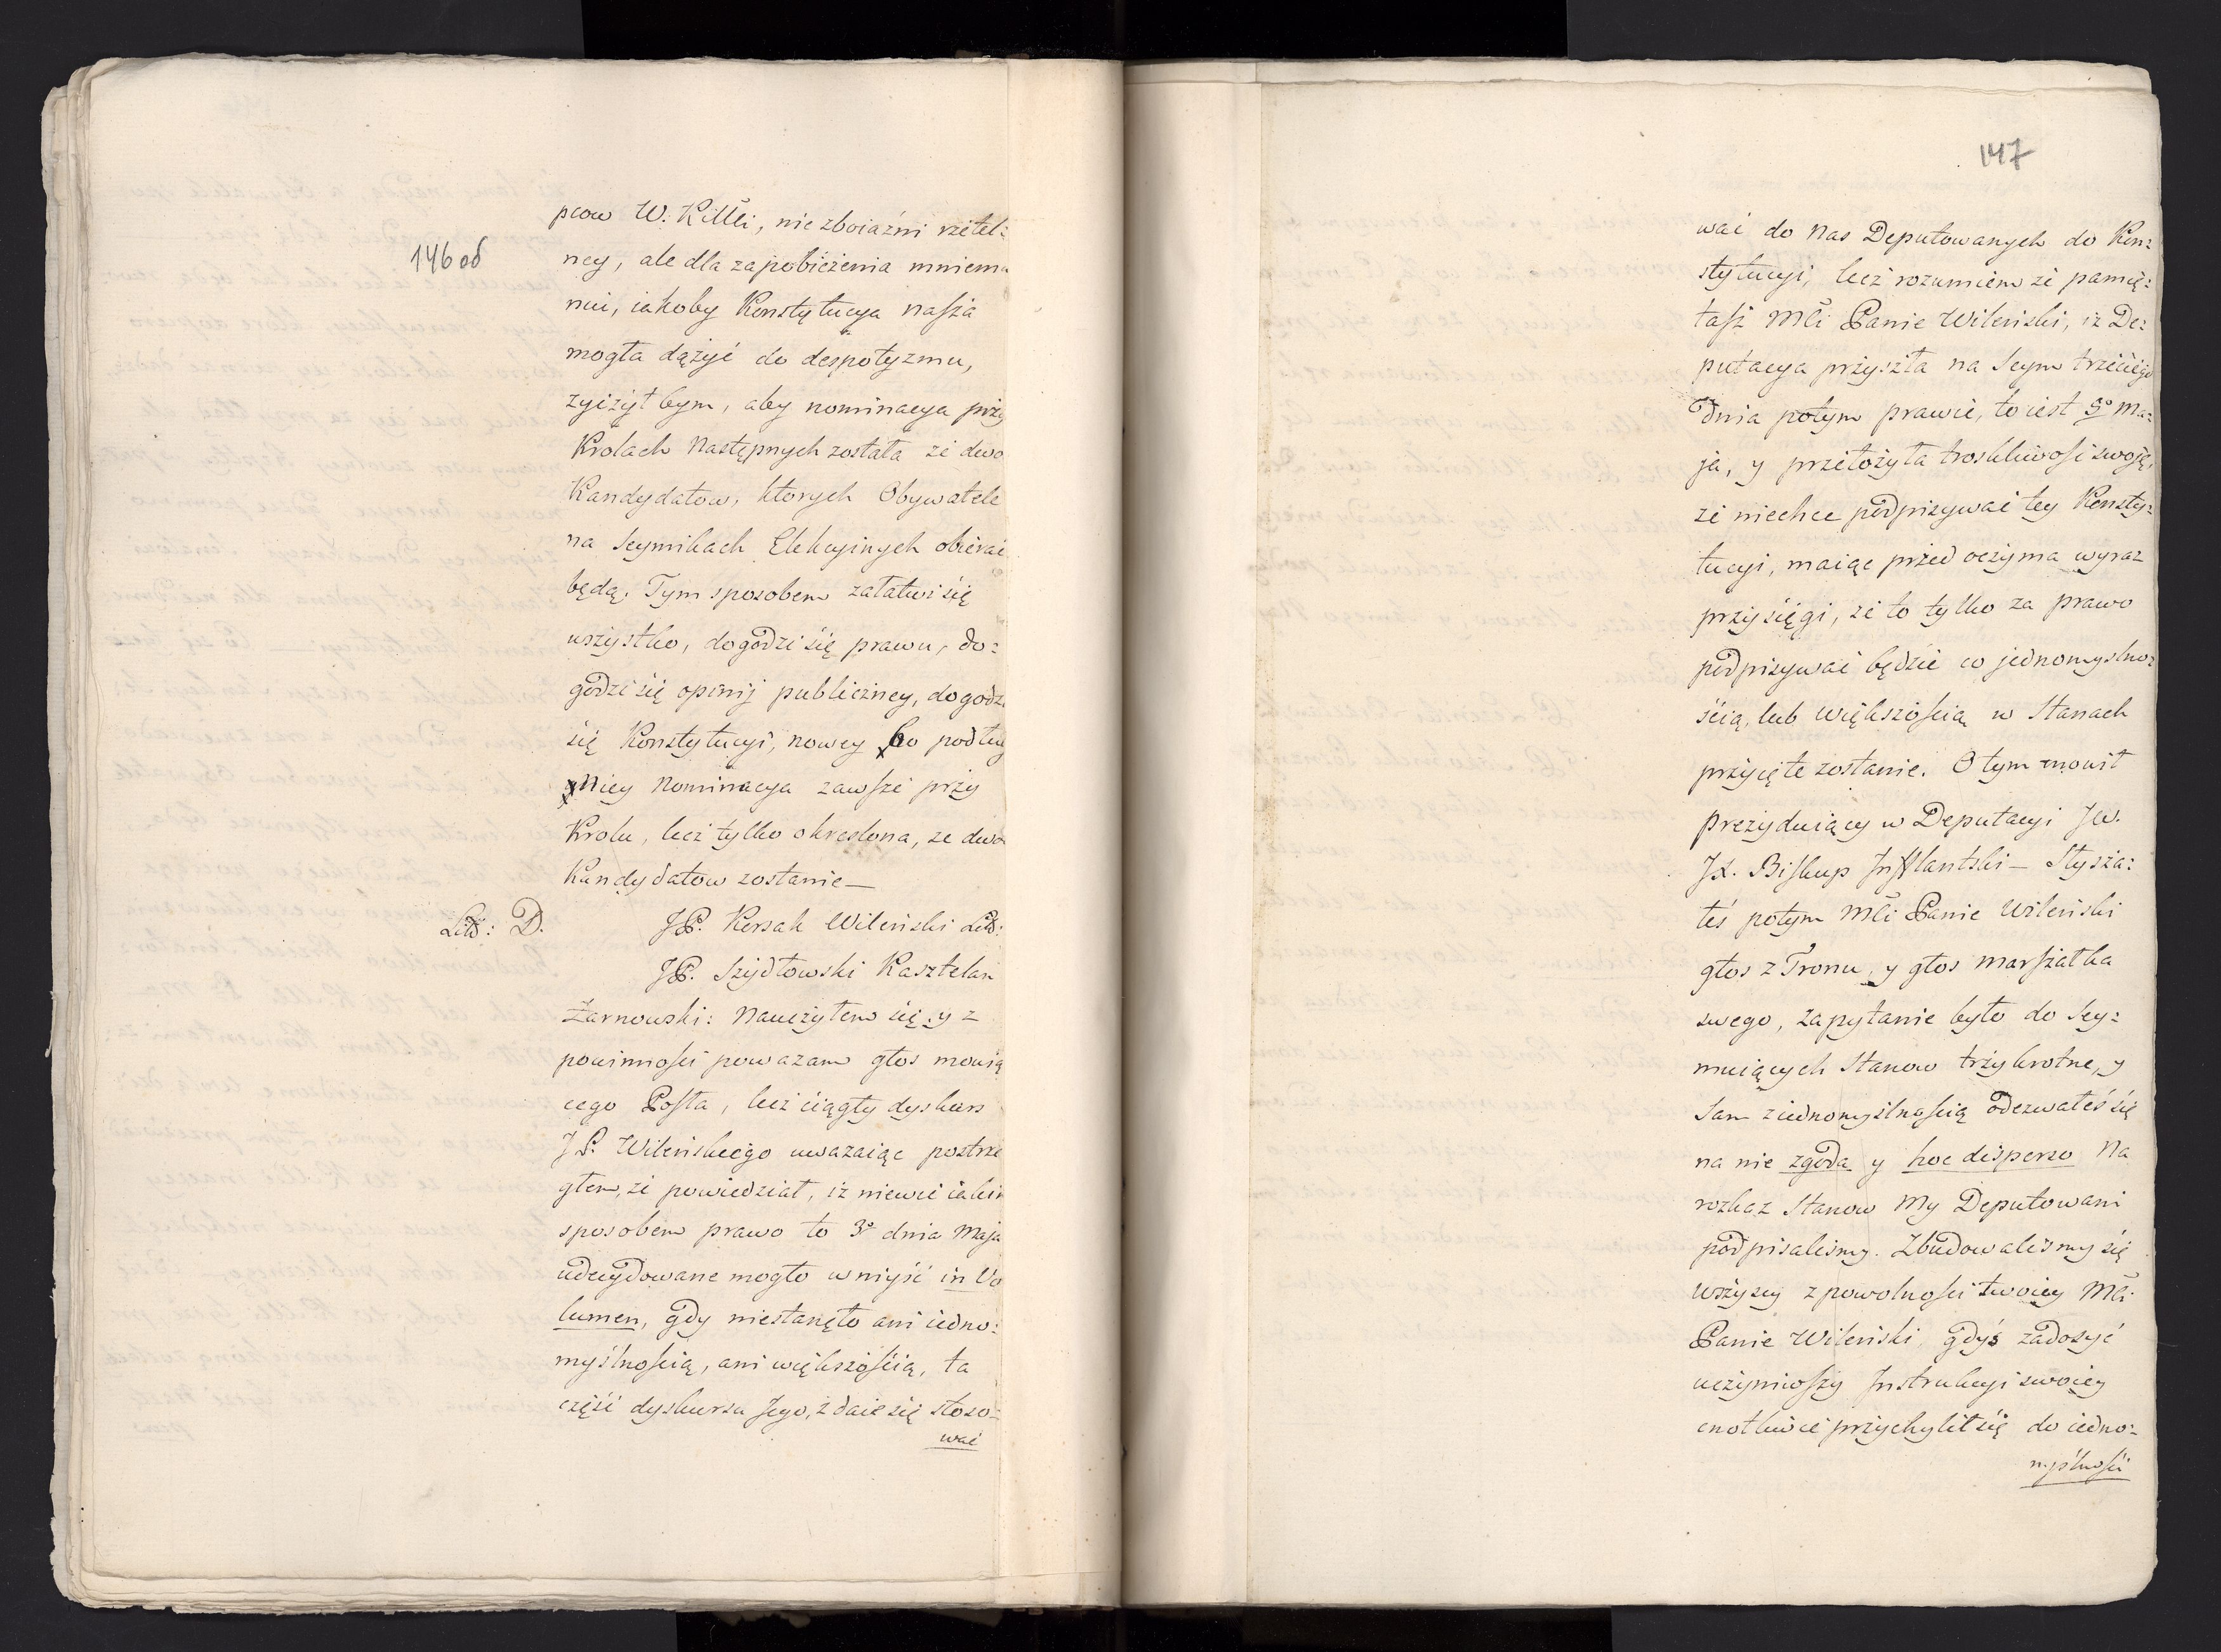 146 об
pcow W. K. Mci, nie zboiaźni rzetel:
ney, ale dla zapobieżenia mniema
niu, iakoby Konstytucya nasza
mogła dążyć do despotyzmu,
życzył bym, aby nominacya przy
Krolach Następnych została ze dwo
Kandydatow, ktorych Obywatele
na Seymikach Elekcyinych obierać
będą. Tym sposobem załatwi się
wszystko, dogodzi się prawu, do:
godzi się opinij publiczney, dogodzi
się Konstytucyi, nowey bo podług
Niey Nominacya zawsze przy
Krolu, lecz tylko okreslona, ze dwo
Kandydatow zostanie—
Litt: D. JP. Korsak Wileński Litt:
JP. Szydłowski Kasztelan
Żarnowski: Nauczyłem się y z
powinności poważam głos mowią
cego Posła, lecz ciągły dyskurs
JP. Wileńskiego uwazaiąc postrze
głem, że powiedział, iż niewie iakim
sposobem prawo to 3º dnia Maja
udecydowane mogło wniyść in Vo
lumen, gdy niestanęło ani iedno:
myślnością, ani większością, ta
część dyskursu Jego, zdaie się stoso:
wać
147
wać do Nas Deputowanych do Kon:
stytucyi, lecz rozumiem że pamię:
tasz Mci Panie Wileński, iż De:
putacya przyszła na Seym trzeciego
Dnia potym prawie, to iest 5º Ma:
ja, y przełożyła troskliwość swoję,
że niechce podpisywać tey Konsty:
tucyi, maiąc przed oczyma wyraz
przysięgi, że to tylko za prawo
podpisywać będzie co jednomyslno:
ścią, lub większością w Stanach
przyięte zostanie. O tym mowił
Prezyduiący w Deputacyi JW.
JX. Biskup Inflantski— Słysza:
łeś potym Mci Panie Wileński
głos z Tronu, y głos Marszałka
swego, zapytanie było do Sey:
muiących Stanow trzykrotne, y
Sam z iednomyślnością odezwałeś się
na nie zgoda y hoc disperso Na
rozkaz Stanow My Deputowani
podpisalismy. Zbudowalismy się
wszyscy z powolności twoiey Mci
Panie Wileński, gdyś zadosyć
uczyniwszy Instrukcyi swoiey
cnotliwie przychylił się do iedno:
myślności